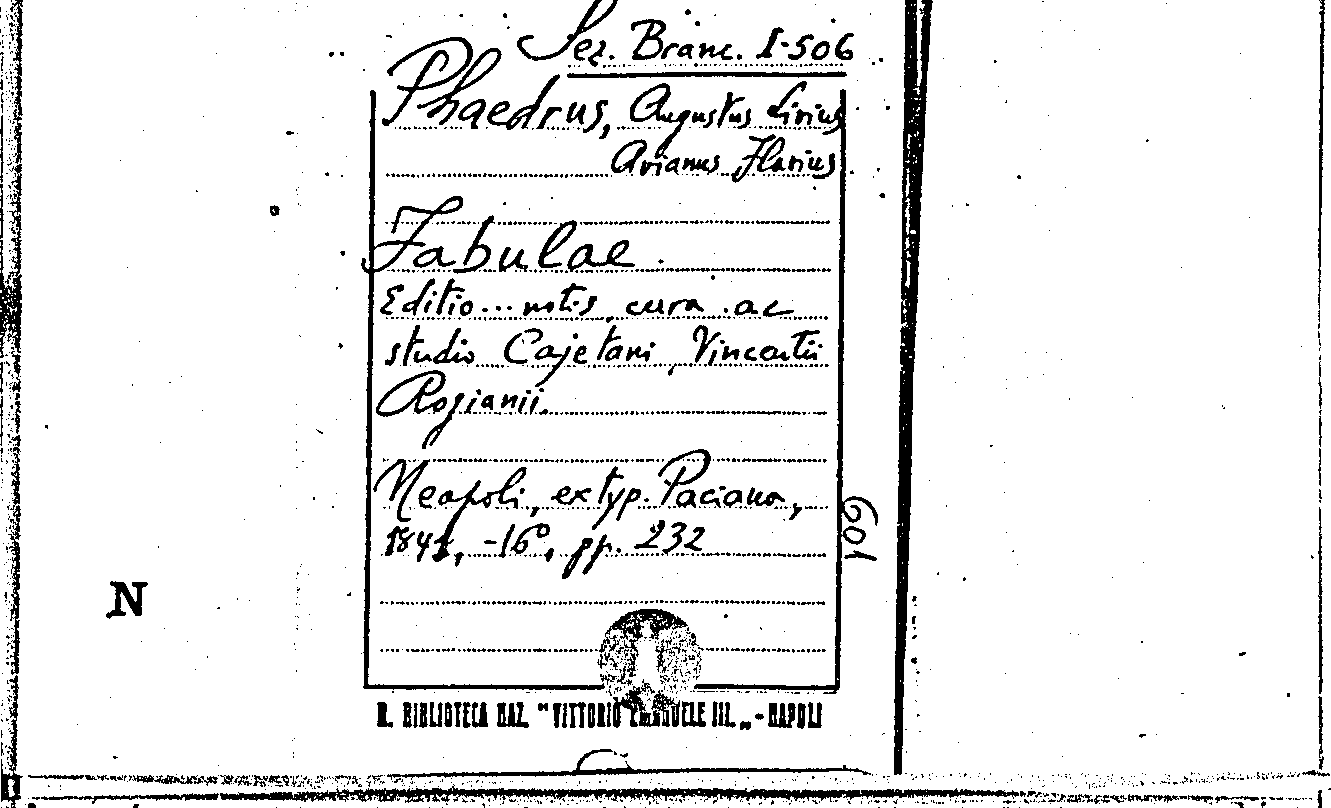 Sez. Branc. I-506
Phaedrus, Augustus Livius
Avianus Flavius
Fabulae.
Editio... notis, cura ac
studio Cajetani Vincentii
Rogianii.
Neapoli, ex typ. Paciana,
-16°, pp. 232
601
N
R. BIBLIOTECA NAZ. "VITTORIO EMANUELE III.„ - NAPOLI